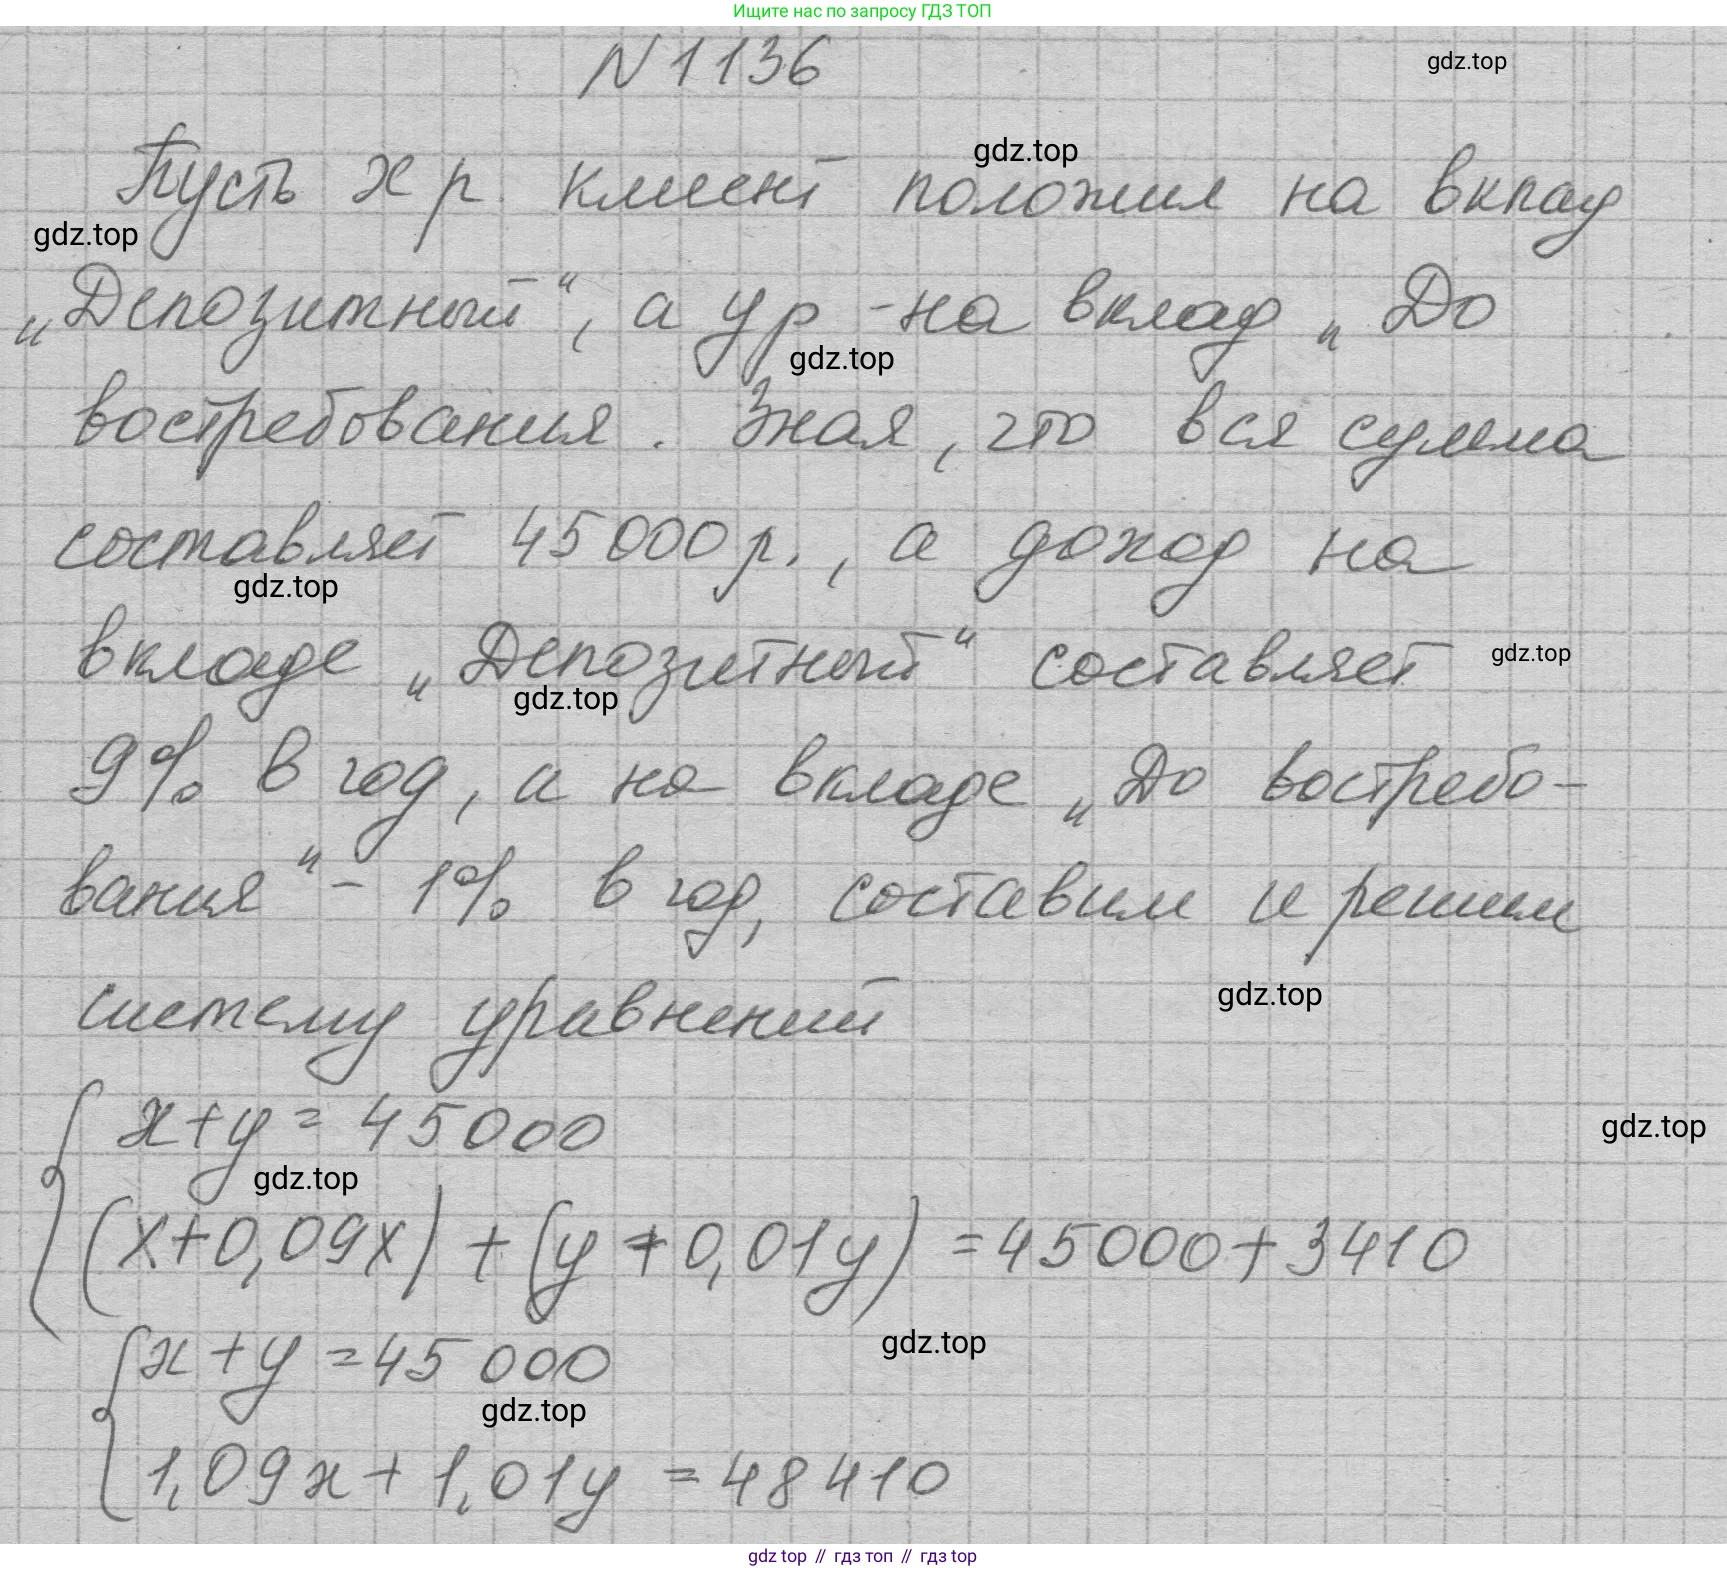 Ищите нас по запросу ГДЗ ТОП
N 1136
gdz.top
Пусть x р. клиент положил на вклад
gdz.top
gdz.top
„Депозитный“, а y р - на вклад „До
gdz.top
востребования. Зная, что вся сумма
составляет 45000 р., а доход на
gdz.top
вкладе „Депозитный“ составляет
gdz.top
gdz.top
9% в год, а на вкладе „До востребо-
вания“ - 1% в год, составим и решим
систему уравнений
gdz.top
x+y= 45000
gdz.top
gdz.top
(x+0,09x) + (y+0,01y) =45000+3410
x+y =45 000
gdz.top
gdz.top
1,09x+1,01y =48410
gdz top // гдз топ // гдз top